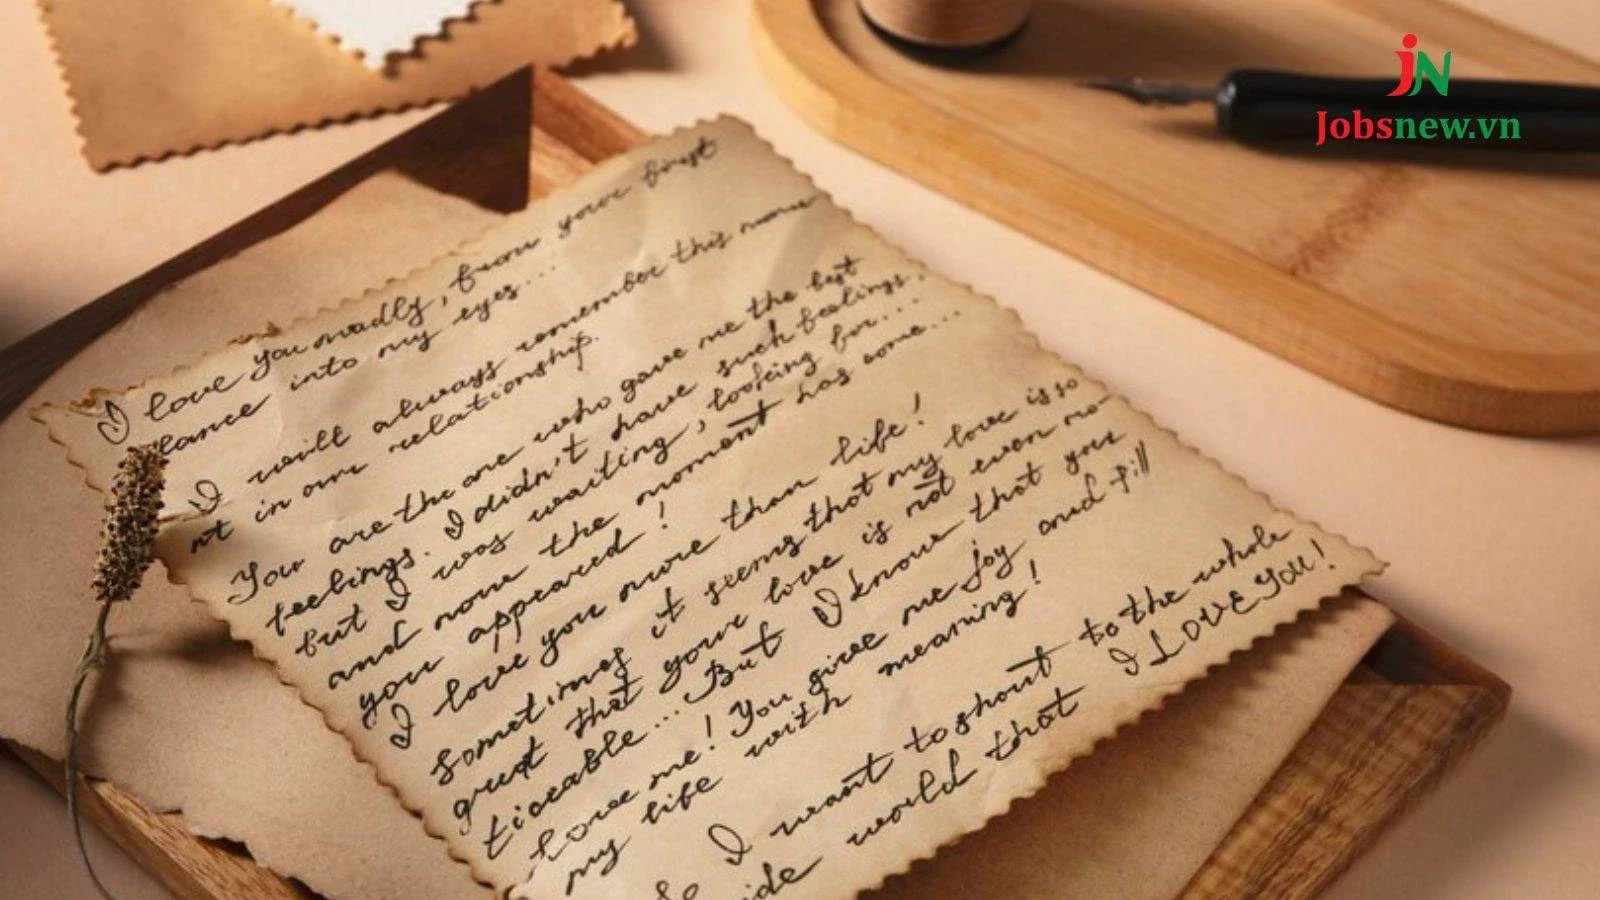 JN
Jobsnew.vn
I love you madly, from your first
glance into my eyes...
I will always remember this mome
nt in our relationship.
You are the one who gave me the best
feelings. I didn't have such feelings,
but I was waiting, looking for...
and now the moment has come...
you appeared!
I love you more than life!
Sometimes it seems that my love is so
great that your love is not even no-
ticeable... But I know that you
love me! You give me joy and fill
my life with meaning!
So I want to shout to the whole
wide world that I LOVE YOU!